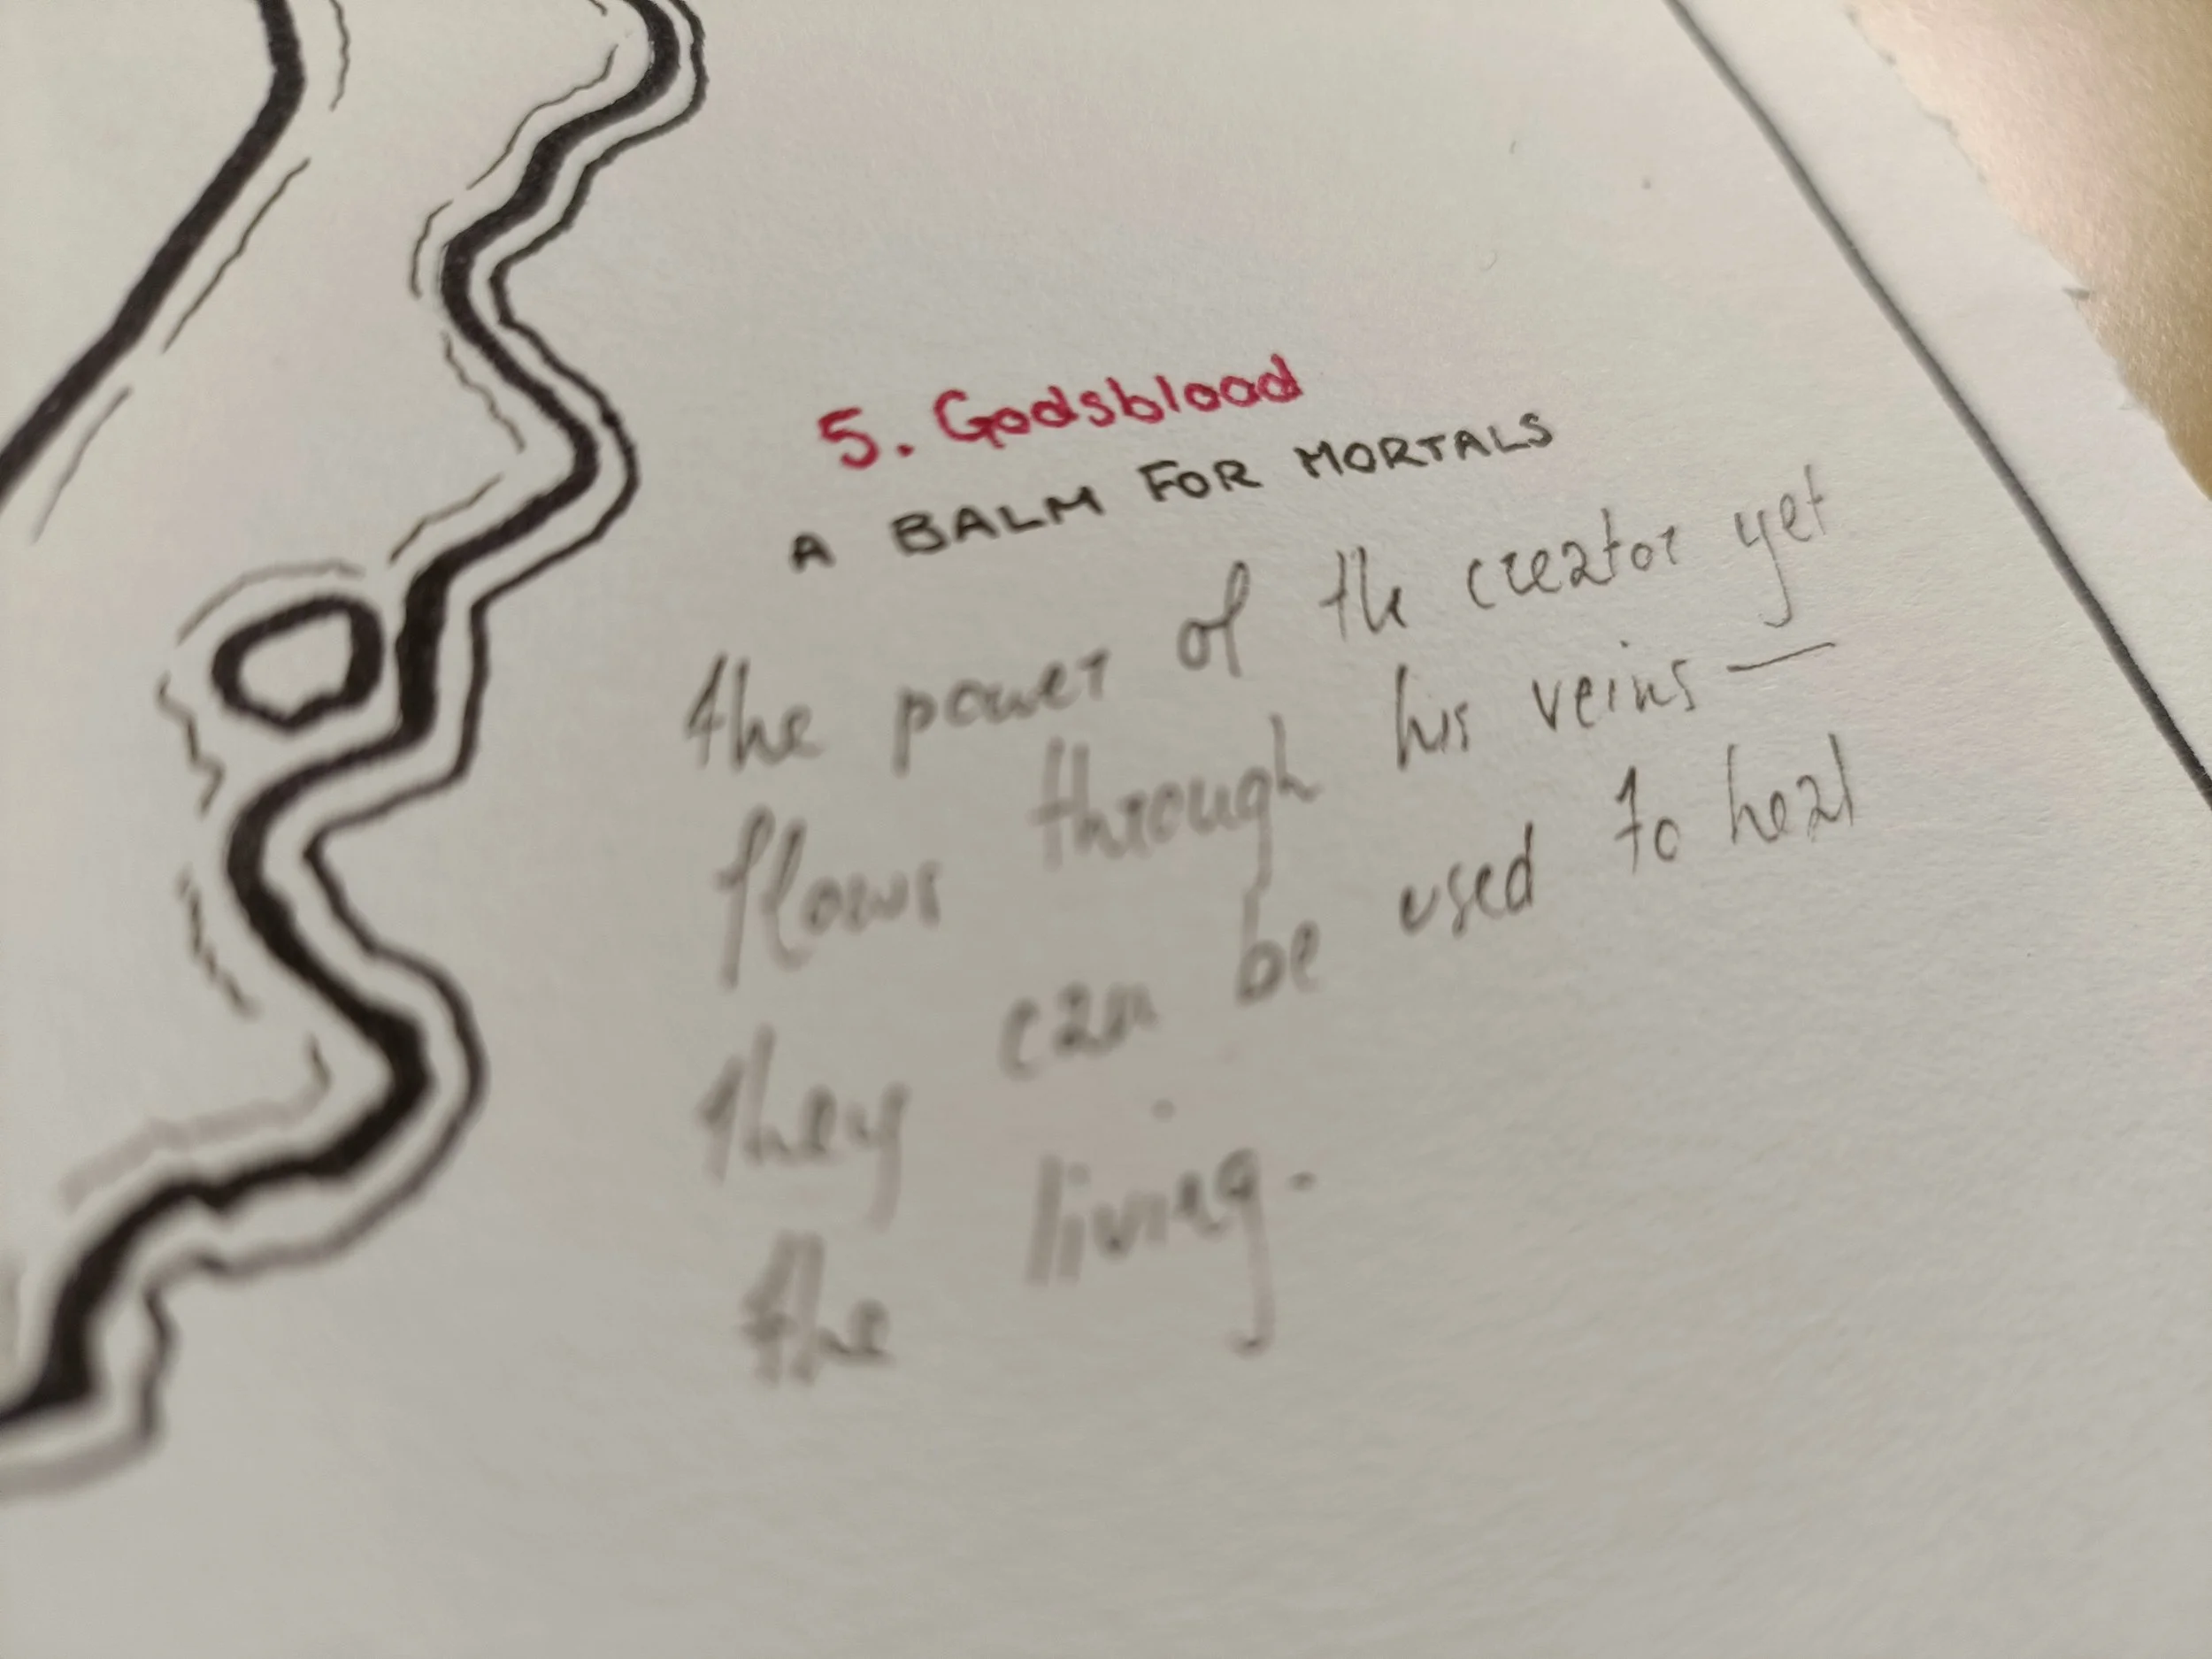 5. Godsblood
A BALM FOR MORTALS
the power of the creator yet
flows through his veins —
they can be used to heal
the living.